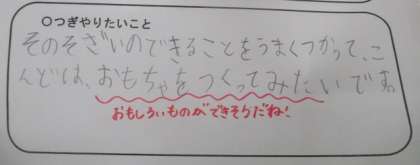 ○つぎやりたいこと
そのそざいのできることをうまくつかって、こ
んどは、おもちゃをつくってみたいです。
おもしろいものができそうだね!